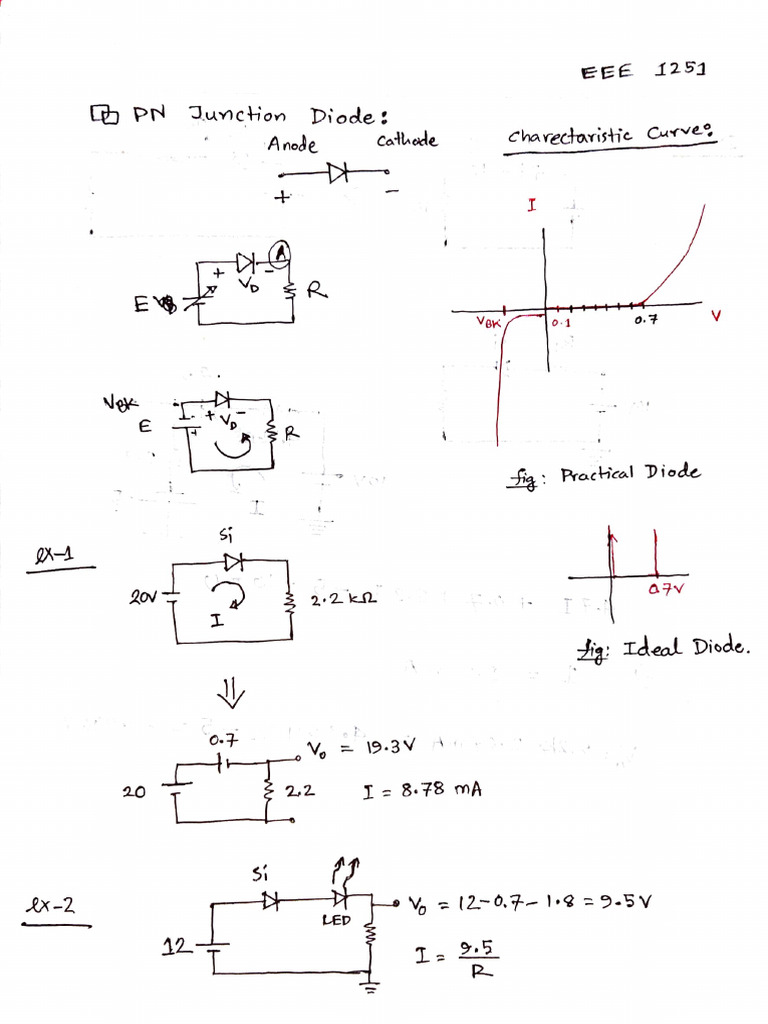 EEE 1251
PN Junction Diode:
Anode Cathode
+ -
Charectaristic Curve:
I
VBK 0.1 0.7 V
fig: Practical Diode
A
+ VD -
E R
VBK
E + VD - R
+
ex-1
Si
20V I 2.2 kΩ
0.7V
fig: Ideal Diode.
⇓
0.7
V₀ = 19.3V
20 2.2 I = 8.78 mA
ex-2
Si
LED
V₀ = 12-0.7-1.8 = 9.5V
12
I = 9.5/R